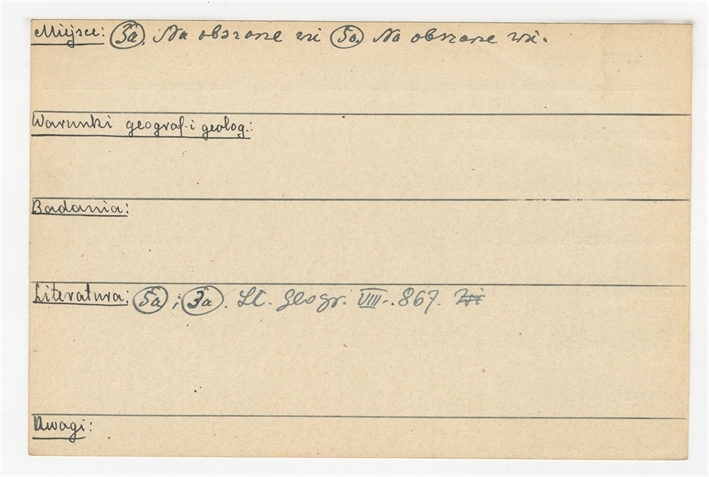 Miejsce: 3a. Na obszarze wsi 5a. Na obszarze wsi.
Warunki geograf. i geolog.:
Badania:
Literatura: 5a; 3a. Sł. Geogr. VIII. 867.
Uwagi: